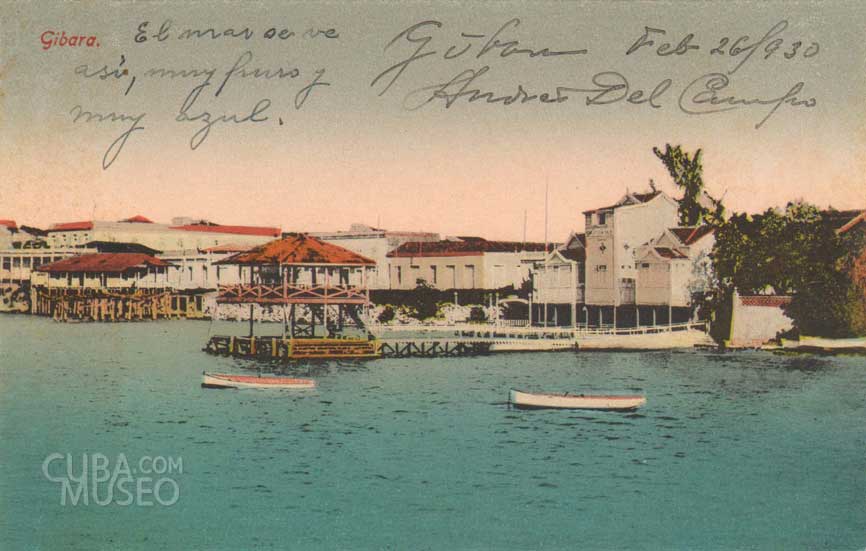 Gibara.
El mar se ve
así, muy puro y
muy azul.
Gibara Feb 26/930
Andres Del Campo
CUBA.COM
MUSEO